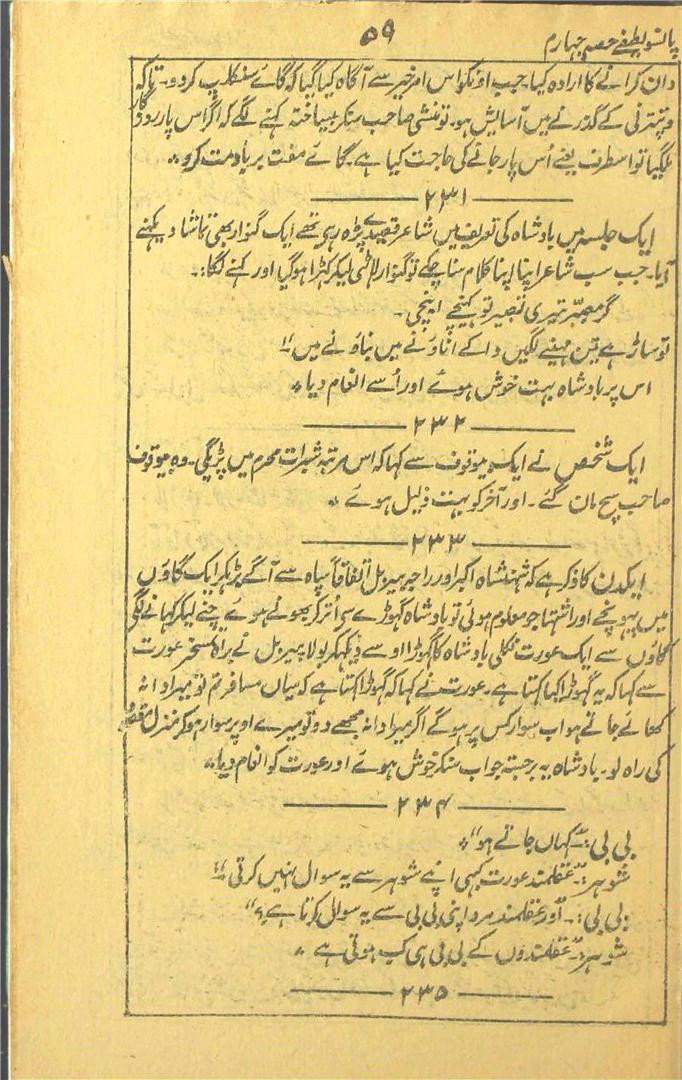 پانسو لطیفے حصہ چہارم
۵۹
دان کرانے کا ارادہ کیا۔ جب اونکو اس امر خیر سے آگاہ کیا گیا کہ گائے سنکلپ کردو۔ تاکہ
بیترنی کے گذرنے میں آسایش ہو۔ تو منشی صاحب سنکر بیساختہ کہنے لگے کہ اگر اس پار روزگار
لگیا تو اسطرف یعنے اُس پار جانے کی حاجت کیا ہے۔ گائے مفت برباد مت کرو٭
۲۳۱
ایک جلسہ میں بادشاہ کی تعریف میں شاعر قصیدے پڑہ رہی تھے ایک گنوار بھی تماشا دیکہنے
آیا۔ جب سب شاعر اپنا اپنا کلام سنا چکے تو گنوار لاٹھی لیکر کہڑا ہوگیا اور کہنے لگا:۔
تیری تصیر تو کہنچے اینچی۔
تو ساڑہے تین مہینے لگیں دا کے اناؤنے میں بناؤنے میں“
اس پر بادشاہ بہت خوش ہوئے اور اُسے انعام دیا٭
۲۳۲
ایک شخص نے ایک بیوقوف سے کہا کہ اس مرتبہ شبرات محرم میں پڑیگی۔ وہ بیوقوف
صاحب سچ مان گئے۔ اور آخر کو بہت ذلیل ہوئے ٭
۲۳۳
ایکدن کا ذکر ہے کہ شہنشاہ اکبر اور راجہ بیربل اتفاقاً سپاہ سے آگے بڑہکر ایک گاؤں
میں پہونچے اور اشتہا جو معلوم ہوئی تو بادشاہ گہوڑے سی اُترکر بھونے ہوئے چنے لیکر کہانے لگی
گاؤں سے ایک عورت نکلی بادشاہ کا گہوڑا اوسے دیکہکر بولا بیربل نے براہ تمسخر عورت
سے کہا کہ یہ گہوڑا کیا کہتا ہے۔ عورت نے کہا کہ گہوڑا کہتا ہے کہ میاں مسافر تم تو میرا دانہ
کھائے جاتے ہو اب سوار کس پر ہوگے اگر میرا دانہ مجھے دو تو میرے اوپر سوار ہوکر منزل مقصود
کی راہ لو۔ بادشاہ یہ برجستہ جواب سنکر خوش ہوئے اور عورت کو انعام دیا٭
۲۳۴
بی بی:۔ ”کہاں جاتے ہو“ ٭
شوہر:۔ ”عقلمند عورت کبہی اپنے شوہر سے یہ سوال نہیں کرتی“
بی بی:۔ ”اَور عقلمند مرد اپنی بی بی سے یہ سوال کرتا ہے؟“
شوہر:۔ ”عقلمندوں کے بی بی ہی کب ہوتی ہے ٭
۲۳۵